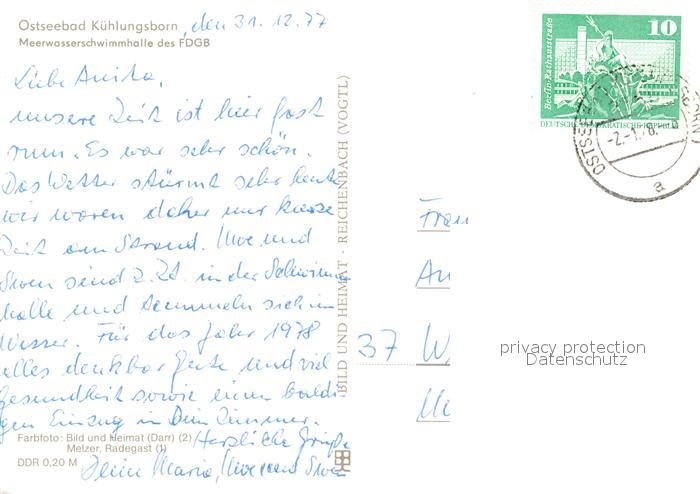 Ostseebad Kühlungsborn, den 31.12.77
Meerwasserschwimmhalle des FDGB
Liebe Anita,
unsere Zeit ist hier fast
rum. Es war sehr schön.
Das Wetter stürmt sehr heute
wir waren daher nur kurze
Zeit am Strand. Uwe und
Swen sind z. Zt. in der Schwimm
halle und tummeln sich im
Wasser. Für das Jahr 1978
alles denkbar Gute und viel
Gesundheit sowie einen baldi-
gen Einzug in Dein Zimmer.
Herzliche Grüße
Deine Maria, Uwe und Swen
Farbfoto: Bild und Heimat (Darr) (2)
Melzer, Radegast (1)
DDR 0,20 M
BILD UND HEIMAT · REICHENBACH (VOGTL)
10
Berlin, Rathausstraße
DEUTSCHE DEMOKRATISCHE REPUBLIK
OSTSEEBAD
-2.-1.78
a
Frau
An
37 W
privacy protection
Datenschutz